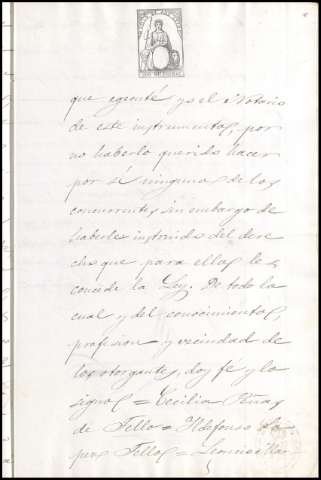 que egecuté yo el Notario
de este instrumento, por
no haberlo querido hacer
por sí ninguno de los
concurrentes sin embargo de
haberles instruido del dere
cho que para ello les
concede la Ley. De todo lo
cual y del conocimiento,
profesion y vecindad de
los otorgantes, doy fé y lo
signo = Cecilia Peñas
de Tello = Ildefonso Lo
pera Tello =